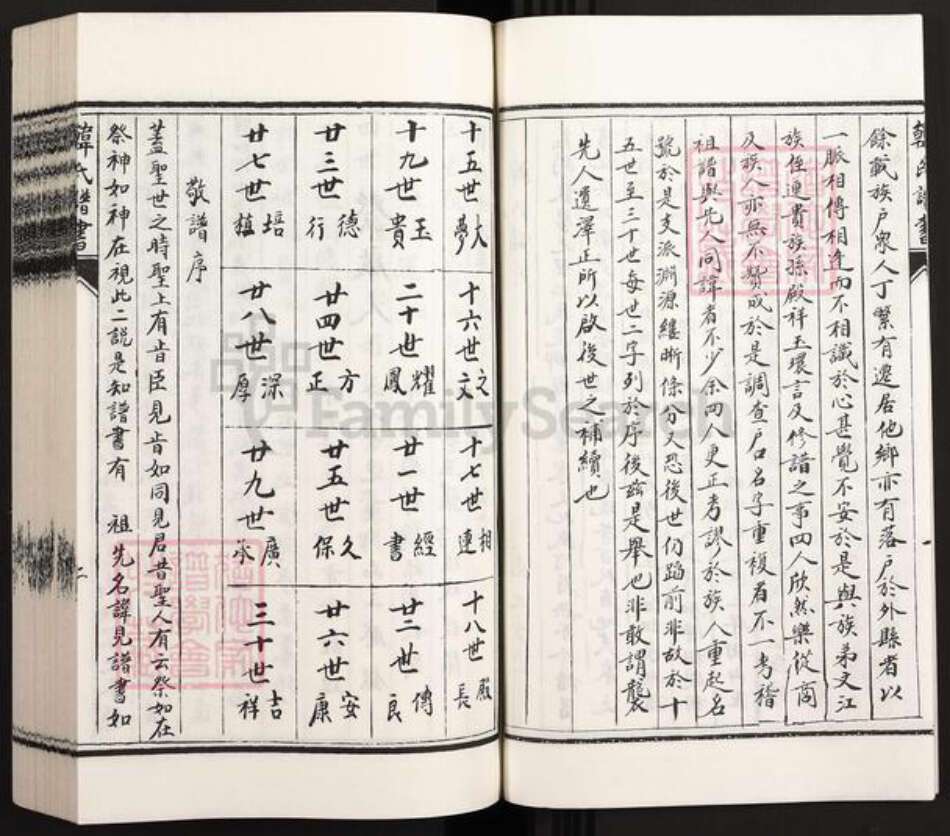 韓氏譜書
一
餘載族戶衆人丁繁有遷居他鄉亦有落戶於外縣者以
一脈相傳相逢而不相識於心甚覺不安於是與族弟文江
族侄連貴族孫殿祥玉環言及修譜之事四人欣然樂從商
及族人亦無不贊成於是調查戶口名字重複者不一考稽
祖譜與先人同諱者不少余四人更正考謬於族人重起名
號於是支派淵源縷晰條分又恐後世仍蹈前非故於十
五世至三十世每世二字列於序後茲是舉也非敢謂襲
先人遺澤正所以啟後世之補續也
十五世 大夢
十六世 之文
十七世 相連
十八世 殿長
十九世 玉貴
二十世 耀鳳
廿一世 經書
廿二世 傳良
廿三世 德行
廿四世 方正
廿五世 久保
廿六世 安康
廿七世 培植
廿八世 深厚
廿九世 廣承
三十世 吉祥
敬譜序
蓋聖世之時聖上有旨臣見旨如同見君昔聖人有云祭如在
祭神如神在視此二說是知譜書有 祖先名諱見譜書如
韓氏譜書
二
FamilySearch